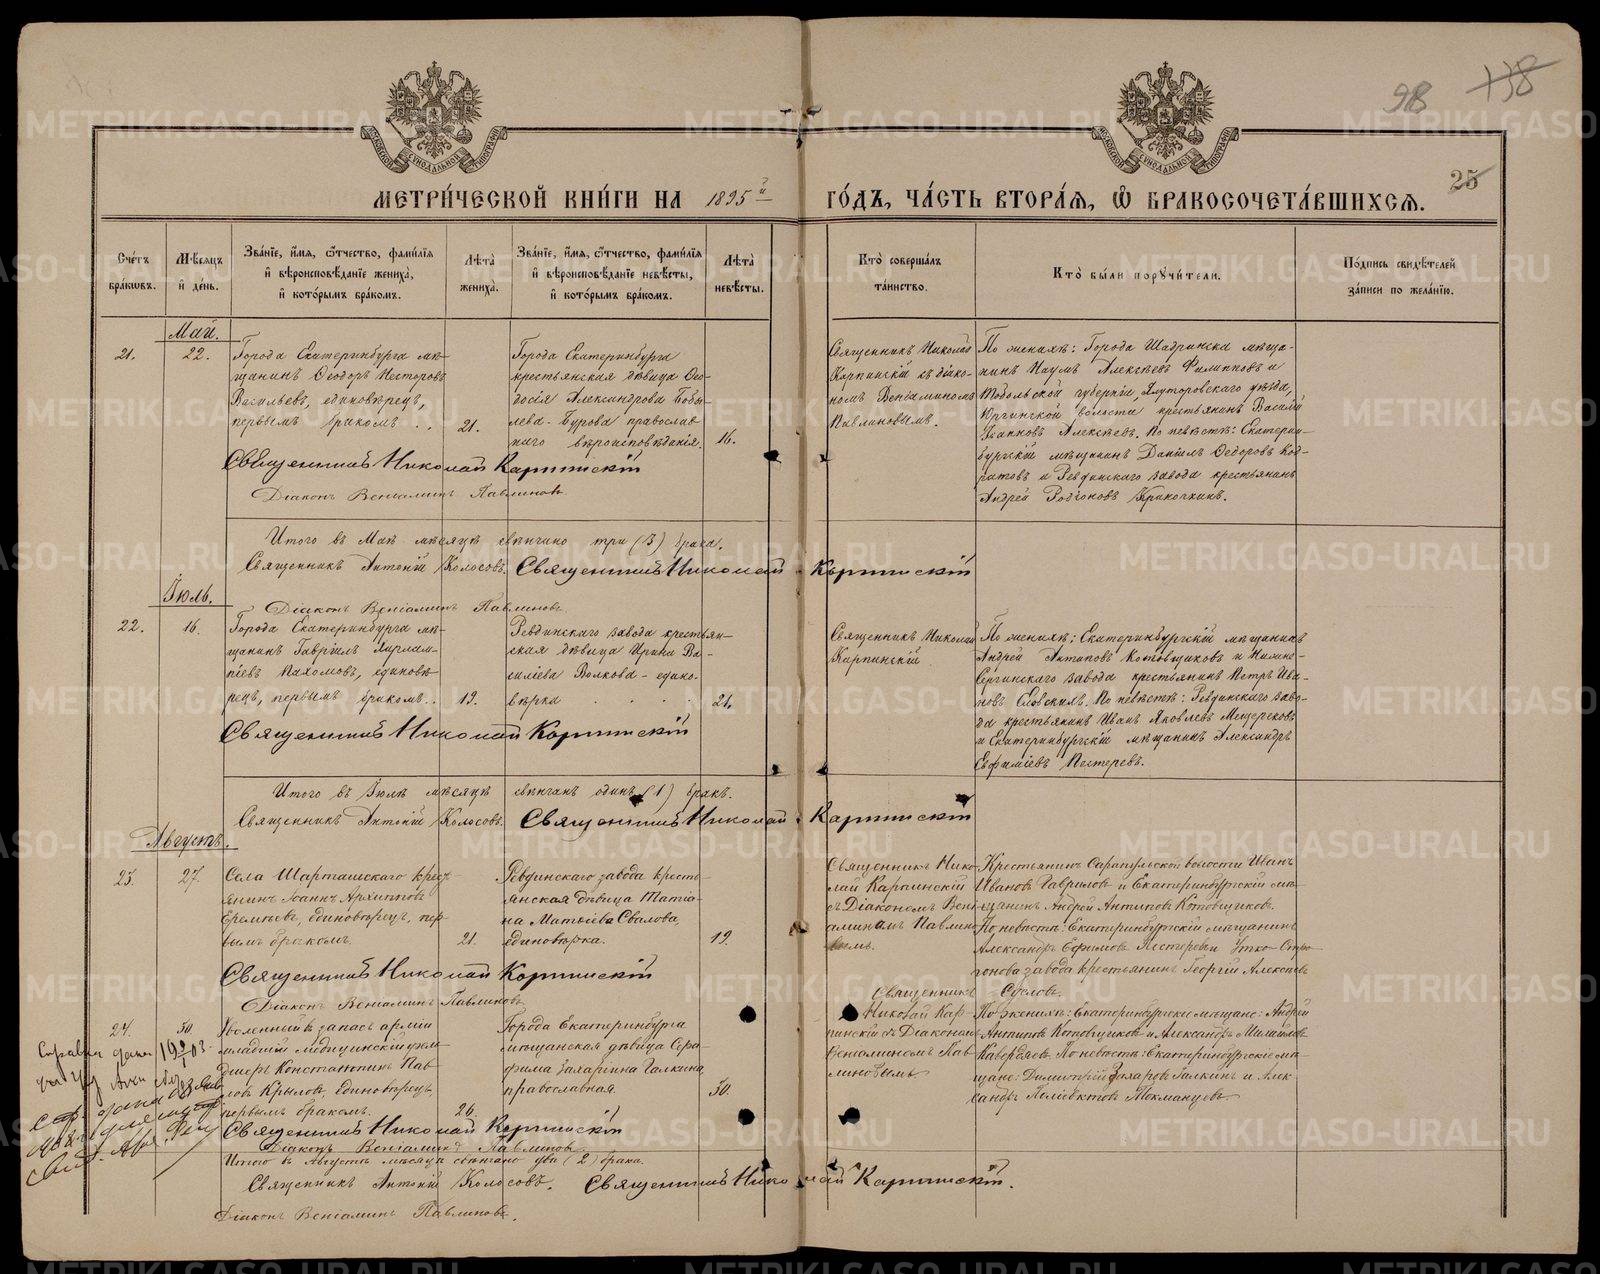 98 138
25
МОСКОВСКОЙ СѴНОДАЛЬНОЙ ТИПОГРАФІИ
МОСКОВСКОЙ СѴНОДАЛЬНОЙ ТИПОГРАФІИ
МЕТРИ́ЧЕСКОЙ КНИ́ГИ НА 1895й ГО́ДЪ, ЧА́СТЬ ВТОРА́Я, Ѽ БРАКОСОЧЕТА́ВШИХСЯ.
Сче́тъ бра́кѡвъ.
Мѣ́сяцъ и҆ де́нь.
Зва́нїе, и҆́мя, ѻ҆́тчество, фами́лїя
и҆ вѣроисповѣ́данїе жениха̀,
и҆ кото́рымъ бра́комъ.
Лѣ́та̀ жениха̀.
Зва́нїе, и҆́мя, ѻ҆́тчество, фами́лїя
и҆ вѣроисповѣ́данїе невѣ́сты,
и҆ кото́рымъ бра́комъ.
Лѣ́та̀ невѣ́сты.
Кто̀ соверша́лъ та́инство.
Кто̀ бы́ли порꙋчи́тели.
По́дпись свидѣ́телей
за́писи по жела́нїю.
Май.
21.
22.
Города Екатеринбурга мѣ-
щанинъ Ѳеодоръ Несторовъ
Васильевъ, единовѣрецъ,
первымъ бракомъ . .
21.
Города Екатеринбурга
крестьянская дѣвица Ѳео-
досія Александрова Бобы-
лева-Бурова православ
наго вѣроисповѣданія.
16.
Священникъ Николай
Карпинскій съ діако-
номъ Веніаминомъ
Павлиновымъ.
По женихѣ: Города Шадринска мѣща-
нинъ Наумъ Алексѣевъ Филипповъ и
Тобольской губерніи, Ялуторовскаго уѣзда,
Юргинской волости крестьянинъ Василій
Іоанновъ Алексѣевъ. По невѣстѣ: Екатерин-
бургскій мѣщанинъ Даніилъ Ѳедоровъ Код-
ратовъ и Ревдинскаго завода крестьянинъ
Андрей Родіоновъ
Священникъ Николай Карпинскій
Діаконъ Веніаминъ Павлиновъ.
Итого въ Маѣ мѣсяцѣ вѣнчано три (3) брака.
Священникъ Антоній Колосовъ. Священникъ Николай Карпинскій
Діаконъ Веніаминъ Павлиновъ.
Іюль.
22.
16.
Города Екатеринбурга мѣ-
щанинъ Гавріилъ Харлам-
піевъ Пахомовъ, единовѣ
рецъ, первымъ бракомъ. .
19.
Ревдинскаго завода крестьян-
ская дѣвица Ирина Ва-
силіева Волкова - едино-
вѣрка . . . .
21.
Священникъ Николай
Карпинскій
По женихѣ: Екатеринбургскій мѣщанинъ
Андрей Антиповъ Котовщиковъ и Нижне-
Сергинскаго завода крестьянинъ Петръ Ива-
новъ Еловскихъ. По невѣстѣ: Ревдинскаго заво-
да крестьянинъ Иванъ Яковлевъ Мещеряковъ
и Екатеринбургскій мѣщанинъ Александръ
Евфиміевъ Пестеревъ.
Священникъ Николай Карпинскій
Итого въ Іюлѣ мѣсяцѣ вѣнчанъ одинъ (1) бракъ.
Священникъ Антоній Колосовъ. Священникъ Николай Карпинскій
Августъ.
23.
27.
Села Шарташскаго крест
янинъ Іоаннъ Архиповъ
Еремѣевъ, единовѣрецъ, пер-
вымъ бракомъ.
21.
Ревдинскаго завода кресть-
янская дѣвица Татіа-
на Матвіева Свалова,
единовѣрка.
19.
Священникъ Нико-
лай Карпинскій
съ Діакономъ Вені-
аминомъ Павлино
вымъ.
Крестьянинъ Сарапульской волости Иванъ
Ивановъ Гавриловъ и Екатеринбургскій мѣ-
щанинъ Андрей Антиповъ Котовщиковъ.
По невѣстѣ: Екатеринбургскій мѣщанинъ
Александръ Ефимовъ Пестеревъ и Утко-Стро-
гонова завода крестьянинъ Георгій Алексѣевъ
Священникъ Николай Карпинскій
Діаконъ Веніаминъ Павлиновъ.
24.
30.
Уволенный въ запасъ арміи
младшій медицинскій фель-
дшеръ Константинъ Пав
ловъ Крыловъ, единовѣрецъ,
первымъ бракомъ.
26.
Города Екатеринбурга
мѣщанская дѣвица Сера-
фима Захарина Галкина,
православная.
30.
Священникъ
Николай Кар-
пинскій съ Діаконом
Веніаминомъ Пав
линовымъ
По женихѣ: Екатеринбургскіе мѣщане: Андрей
Антиповъ Котовщиковъ и Александръ Михайловъ
По невѣстѣ: Екатеринбургскіе мѣ-
щане: Димитрій Захаровъ Галкинъ и Алек-
сандръ Токманцевъ
Священникъ Николай Карпинскій
Діаконъ Веніаминъ Павлиновъ
Итого въ Августѣ мѣсяцѣ вѣнчано два (2) брака.
Священникъ Антоній Колосовъ. Священникъ Николай Карпинскій.
Діаконъ Веніаминъ Павлиновъ.
METRIKI.GASO-URAL.RU